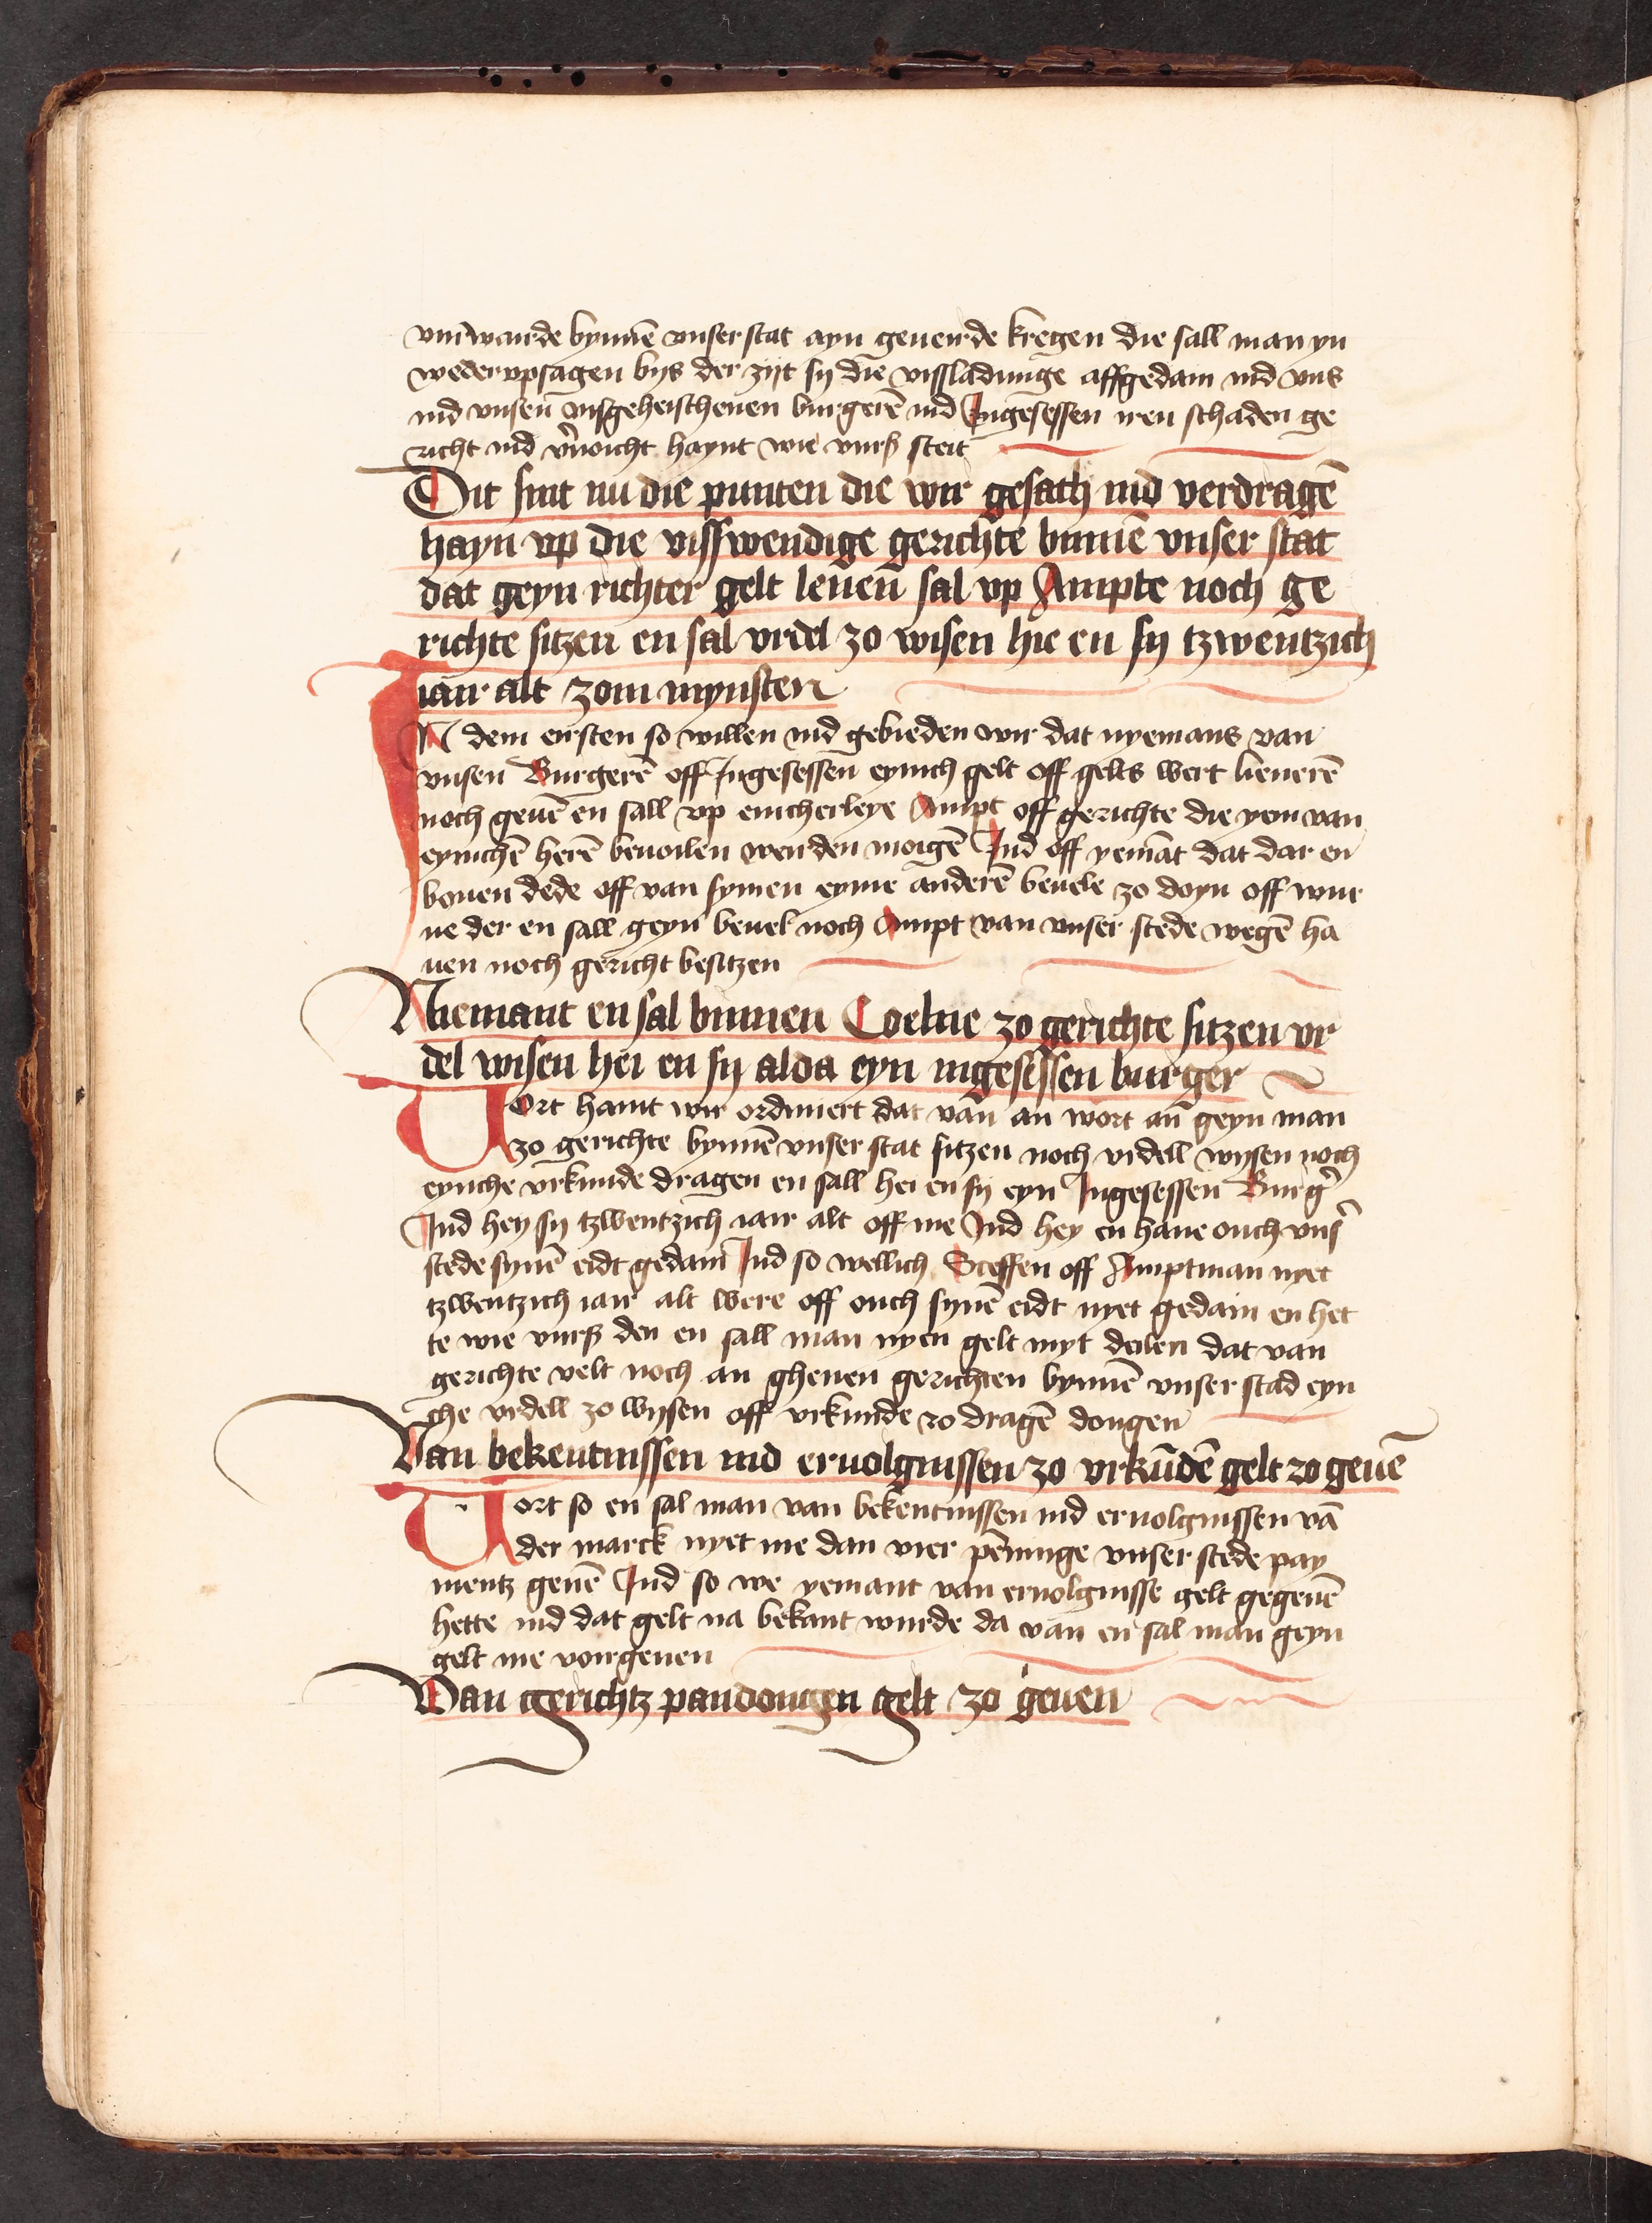 vurwarde bynnē vnser stat ayn geuerde kregen die sall man yn
weder vpsagen bys der zijt sy die vissladunge affgedain ind vns
ind vnsen̄ visgeheischenen burgerē ind Ingesessen iren schaden ge
richt ind v'noicht haynt wie vurß steit
Dit sint nu die punten die wir gesatz ind verdragē
hayn vp die visswendige gerichte binnē vnser stat
dat geyn richter gelt leuen̄ sal vp Ampte noch ge
richte sitzen en sal vrdel zo wisen hie en sy tzwentzich
iair alt zom mynsten
IN dem eirsten so willen ind gebieden wir dat nyemans van
vnsen Burgerē off Ingesessen eynich gelt off geltz wert lieuerē
noch geuē en sall vp enicherleye Ampt off gerichte die yem van
eynichē herē beuoilen werden moigē Ind off yemāt dat dar en
bouen dede off van synen eyme anderē beuele zo doyn off wur
ue der en sall geyn beuel noch Ampt van vnser stede wegē ha
uen noch gericht besitzen
Niemant en sal binnen Coelne zo gerichte sitzen vr
del wisen hei en sy alda eyn ingesessen burger
Vort haint wir ordiniert dat van an wort an̄ geyn man
zo gerichte bynnē vnser stat sitzen noch vrdell wysen noch
eyniche vrkunde dragen en sall hei en sy eyn Ingesessen Burg'
Ind hey sy tzwentzich iair alt off me Ind hey en haue ouch vns'
stede synē eidt gedain Ind so wellich Sceffen off Amptman nyet
tzwentzich iair alt were off ouch synē eidt nyet gedain en het
te wie vurß den en sall man nyen gelt myt deilen dat van
gerichte velt noch an ghenen gerichten bynnē vnser stad eyn
che vrdell zo wysen off vrkunde zo dragē dongen
Van bekentnissen ind eruolgnissen zo vrkūdē gelt zo geuē
Vort so en sal man van bekentnissen ind eruolgnissen vā
der marck nyet me dan vier pēninge vnser stede pay
mentz geuē Ind so we yemant van eruolgnisse gelt gegeuē
hette ind dat gelt na bekant wurde da van en sal man geyn
gelt me vort geuen
Van gerichtz pandongen gelt zo geuen